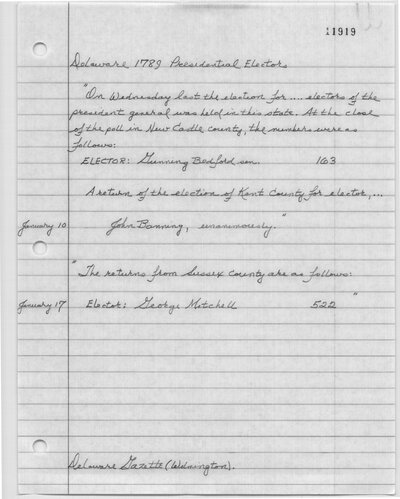 11919
Delaware 1789 Presidential Electors
"On Wednesday last the election for .... electors of the
president general was held in this state. At the close
of the poll in New Castle county, the numbers were as
follows:
ELECTOR: Gunning Bedford sen. 163
A return of the election of Kent County for elector, ...
January 10 John Banning, unanimously."
"The returns from Sussex County are as follows:
January 17 Elector: George Mitchell 522"
Delaware Gazette (Wilmington).